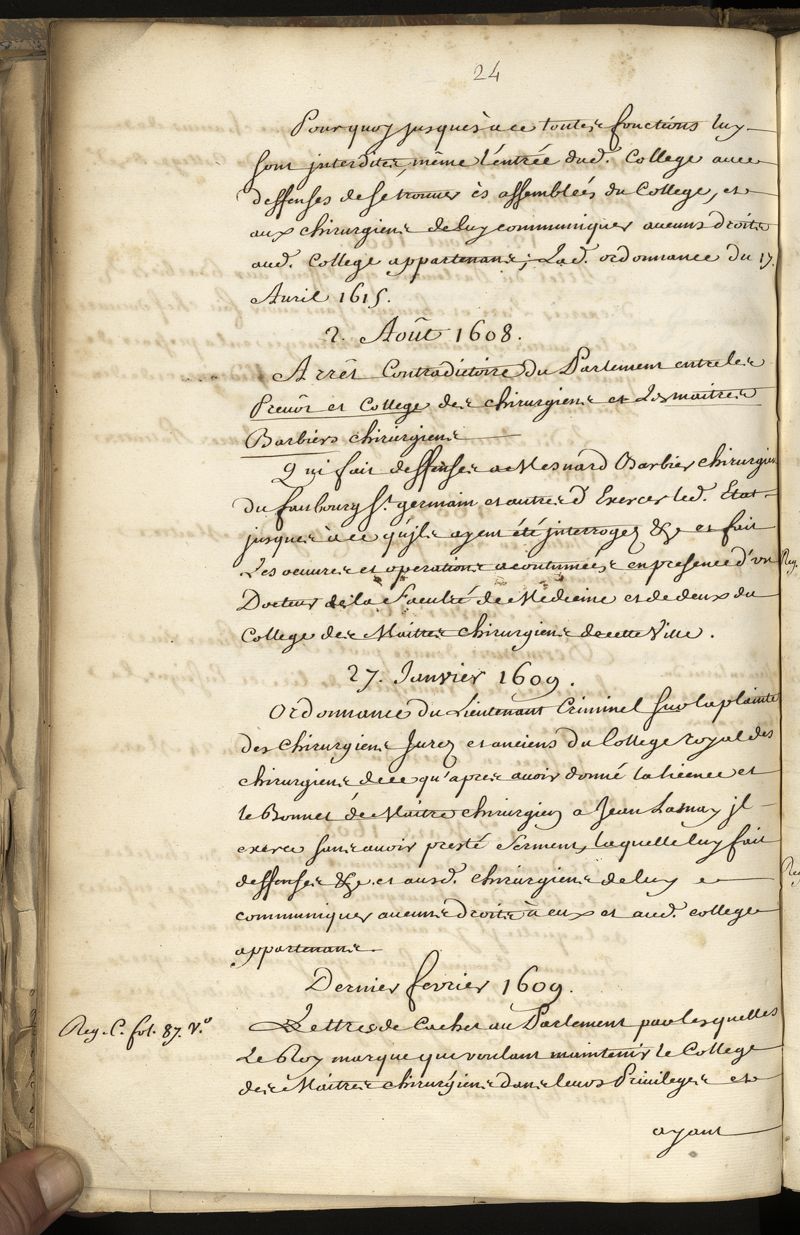 24
Pourquoy jusques à ce toutes fonctions luy
sont interdites, même l'entrée dud. College avec
deffenses de se trouver ès assembleés du College, et
aux chirurgiens de luy communiquer aucuns droits
aud. College appartenans; Lad. ordonnance du 17.
Avril 1615.
2. Août 1608.
Arrêt Contradictoire du Parlement entre les
Prevôt et College des chirurgiens et Les maitres
Barbiers chirurgiens
Qui fait deffenses a Mesnard Barbier chirurgien
du faubourg St. germain et autres d'Exercer led. Etat
jusques à ce qu'jls ayent été jnterrogez &c et fait
Les oeuvres et operations acoutumées en presence d'un
Docteur de la Faculté de Medecine et de deux du
College des Maitres chirurgiens de cette Ville.
27. Janvier 1609.
Ordonnance du Lieutenant Criminel sur la plainte
des chirurgiens Jurez et anciens du College royal des
chirurgiens de ce qu'apres avoir donné la licence et
le Bonnet de Maitre chirurgien a Jean Lasnay jl
exerce sans avoir presté serment, laquelle luy fait
deffenses &c. et ausd. chirurgiens de luy
communiquer aucuns droits à eux et aud. college
appartenans.
Dernier fevrier 1609.
Reg. C. fol. 87. V.º
Lettres de Cachet au Parlement par lesquelles
Le Roy marque que voulant maintenir le College
des Maitres chirurgiens dans leurs Privileges et
ayant
Reg.
Reg